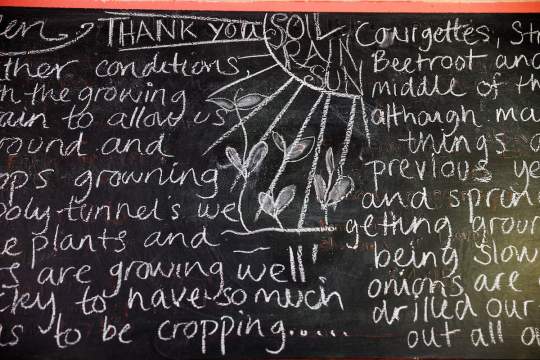 THANK YOU SOIL
RAIN
SUN
ther conditions,
the growing
ain to allow us
round and
ops grownning
poly-tunnel's we
e plants and
are growing well!!
cky to have so much
s to be cropping.....
Courgettes, Str
Beetroot and
middle of th
although ma
things a
previous ye
and sprin
getting grour
being slow
onions are
drilled our
out all o